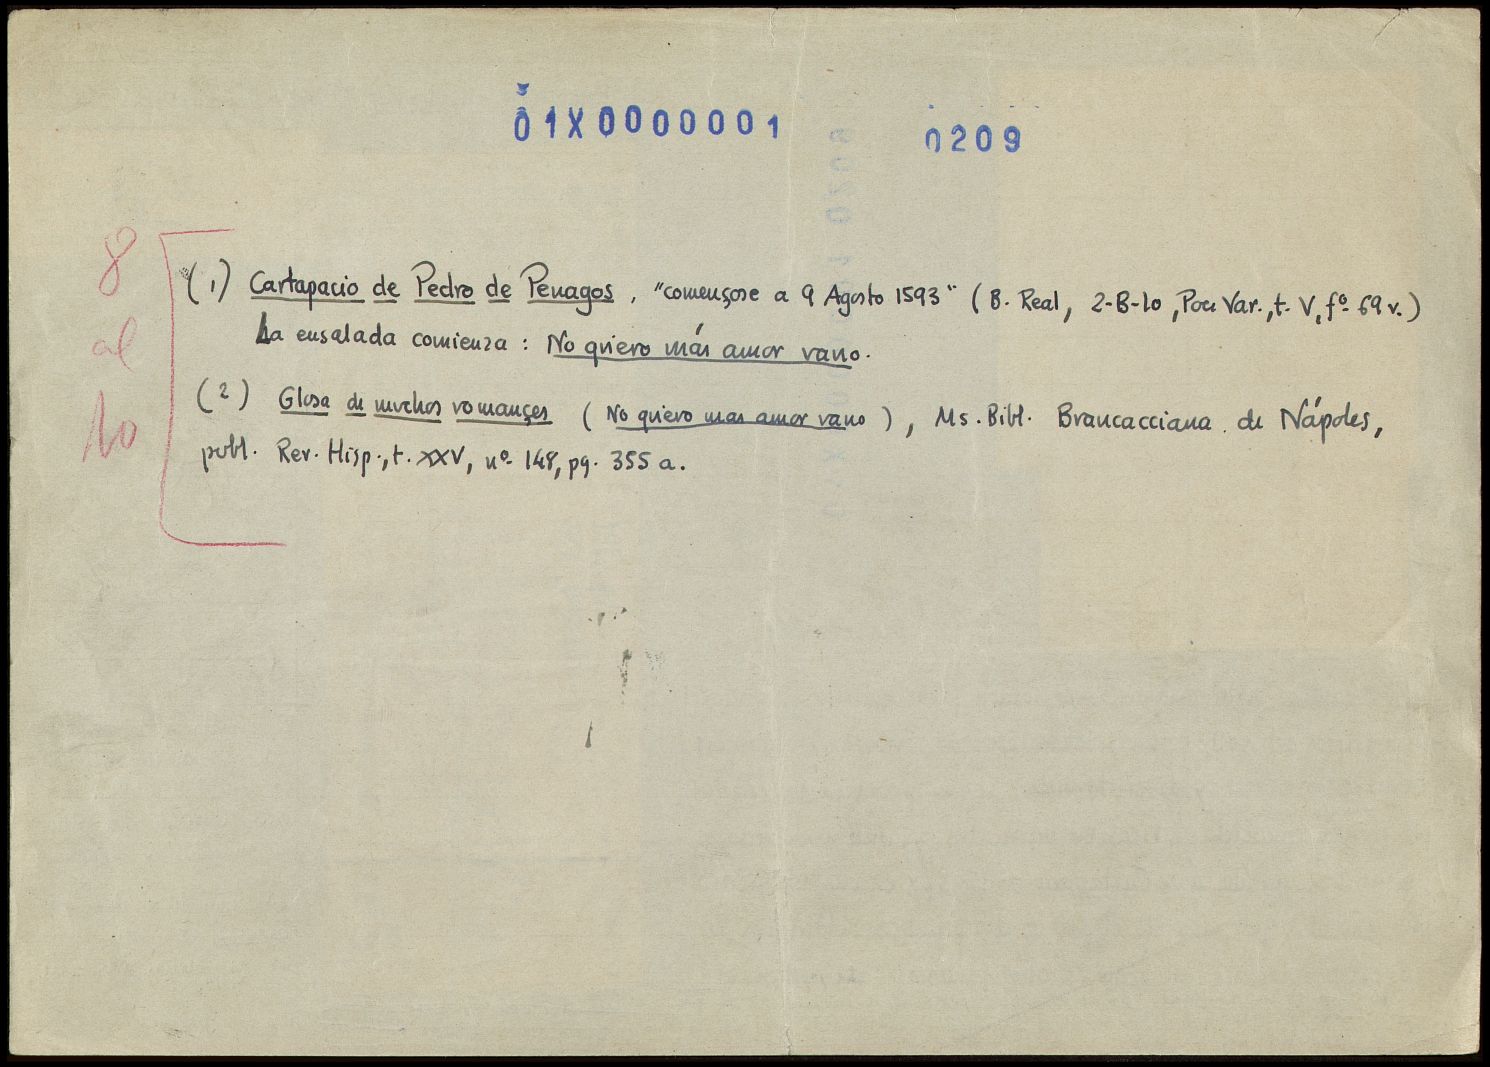 01X0000001 0209
8
al
10
(1) Cartapacio de Pedro de Penagos, "començose a 9 Agosto 1593" (B. Real, 2-B-10, Poes Var., t. V, fº 69 v.)
La ensalada comienza: No quiero más amor vano.
(2) Glosa de muchos romançes (No quiero mas amor vano), Ms. Bibl. Brancacciana de Nápoles,
publ. Rev. Hisp., t. XXV, nº 148, pg. 355 a.